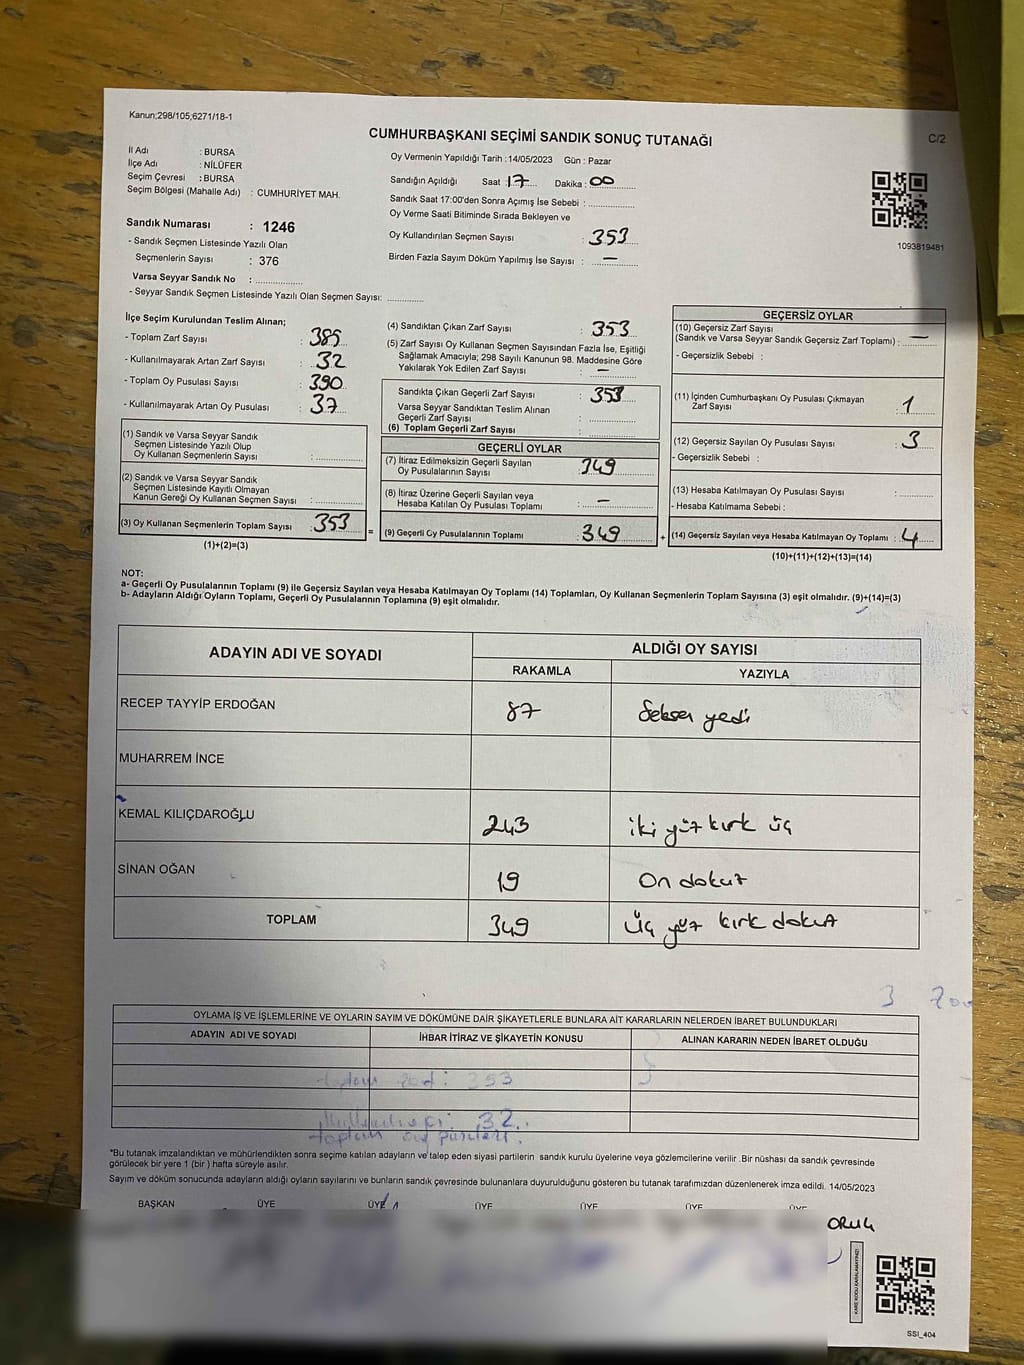 Kanun;298/105;6271/18-1
CUMHURBAŞKANI SEÇİMİ SANDIK SONUÇ TUTANAĞI
C/2
İl Adı : BURSA
İlçe Adı : NİLÜFER
Seçim Çevresi : BURSA
Seçim Bölgesi (Mahalle Adı) : CUMHURİYET MAH.
Sandık Numarası : 1246
- Sandık Seçmen Listesinde Yazılı Olan
Seçmenlerin Sayısı : 376
Varsa Seyyar Sandık No :
- Seyyar Sandık Seçmen Listesinde Yazılı Olan Seçmen Sayısı:
Oy Vermenin Yapıldığı Tarih : 14/05/2023 Gün : Pazar
Sandığın Açıldığı Saat : 17 Dakika : 00
Sandık Saat 17:00'den Sonra Açımış İse Sebebi :
Oy Verme Saati Bitiminde Sırada Bekleyen ve
Oy Kullandırılan Seçmen Sayısı : 353
Birden Fazla Sayım Döküm Yapılmış İse Sayısı : —
1093819481
İlçe Seçim Kurulundan Teslim Alınan;
- Toplam Zarf Sayısı : 385
- Kullanılmayarak Artan Zarf Sayısı : 32
- Toplam Oy Pusulası Sayısı : 390
- Kullanılmayarak Artan Oy Pusulası : 37
(1) Sandık ve Varsa Seyyar Sandık
Seçmen Listesinde Yazılı Olup
Oy Kullanan Seçmenlerin Sayısı :
(2) Sandık ve Varsa Seyyar Sandık
Seçmen Listesinde Kayıtlı Olmayan
Kanun Gereği Oy Kullanan Seçmen Sayısı :
(3) Oy Kullanan Seçmenlerin Toplam Sayısı : 353
(1)+(2)=(3)
(4) Sandıktan Çıkan Zarf Sayısı : 353
(5) Zarf Sayısı Oy Kullanan Seçmen Sayısından Fazla İse, Eşitliği
Sağlamak Amacıyla; 298 Sayılı Kanunun 98. Maddesine Göre
Yakılarak Yok Edilen Zarf Sayısı : —
Sandıkta Çıkan Geçerli Zarf Sayısı : 353
Varsa Seyyar Sandıktan Teslim Alınan
Geçerli Zarf Sayısı :
(6) Toplam Geçerli Zarf Sayısı :
GEÇERLİ OYLAR
(7) İtiraz Edilmeksizin Geçerli Sayılan
Oy Pusulalarının Sayısı : 349
(8) İtiraz Üzerine Geçerli Sayılan veya
Hesaba Katılan Oy Pusulası Toplamı : —
= (9) Geçerli Oy Pusulalarının Toplamı : 349
GEÇERSİZ OYLAR
(10) Geçersiz Zarf Sayısı
(Sandık ve Varsa Seyyar Sandık Geçersiz Zarf Toplamı) : —
- Geçersizlik Sebebi :
(11) İçinden Cumhurbaşkanı Oy Pusulası Çıkmayan
Zarf Sayısı : 1
(12) Geçersiz Sayılan Oy Pusulası Sayısı : 3
- Geçersizlik Sebebi :
(13) Hesaba Katılmayan Oy Pusulası Sayısı :
- Hesaba Katılmama Sebebi :
+ (14) Geçersiz Sayılan veya Hesaba Katılmayan Oy Toplamı : 4
(10)+(11)+(12)+(13)=(14)
NOT:
a- Geçerli Oy Pusulalarının Toplamı (9) ile Geçersiz Sayılan veya Hesaba Katılmayan Oy Toplamı (14) Toplamları, Oy Kullanan Seçmenlerin Toplam Sayısına (3) eşit olmalıdır. (9)+(14)=(3)
b- Adayların Aldığı Oyların Toplamı, Geçerli Oy Pusulalarının Toplamına (9) eşit olmalıdır.
ADAYIN ADI VE SOYADI
ALDIĞI OY SAYISI
RAKAMLA YAZIYLA
RECEP TAYYİP ERDOĞAN 87 Seksen yedi
MUHARREM İNCE
KEMAL KILIÇDAROĞLU 243 iki yüz kırk üç
SİNAN OĞAN 19 On dokuz
TOPLAM 349 üç yüz kırk dokuz
3
OYLAMA İŞ VE İŞLEMLERİNE VE OYLARIN SAYIM VE DÖKÜMÜNE DAİR ŞİKAYETLERLE BUNLARA AİT KARARLARIN NELERDEN İBARET BULUNDUKLARI
ADAYIN ADI VE SOYADI İHBAR İTİRAZ VE ŞİKAYETİN KONUSU ALINAN KARARIN NEDEN İBARET OLDUĞU
toplam 353
32
toplam
*Bu tutanak imzalandıktan ve mühürlendikten sonra seçime katılan adayların ve talep eden siyasi partilerin sandık kurulu üyelerine veya gözlemcilerine verilir .Bir nüshası da sandık çevresinde
görülecek bir yere 1 (bir ) hafta süreyle asılır.
Sayım ve döküm sonucunda adayların aldığı oyların sayılarını ve bunların sandık çevresinde bulunanlara duyurulduğunu gösteren bu tutanak tarafımızdan düzenlenerek imza edildi. 14/05/2023
BAŞKAN ÜYE ÜYE ÜYE ÜYE ÜYE ÜYE
KARE KODU KARALAMAYINIZ!
SSI_404